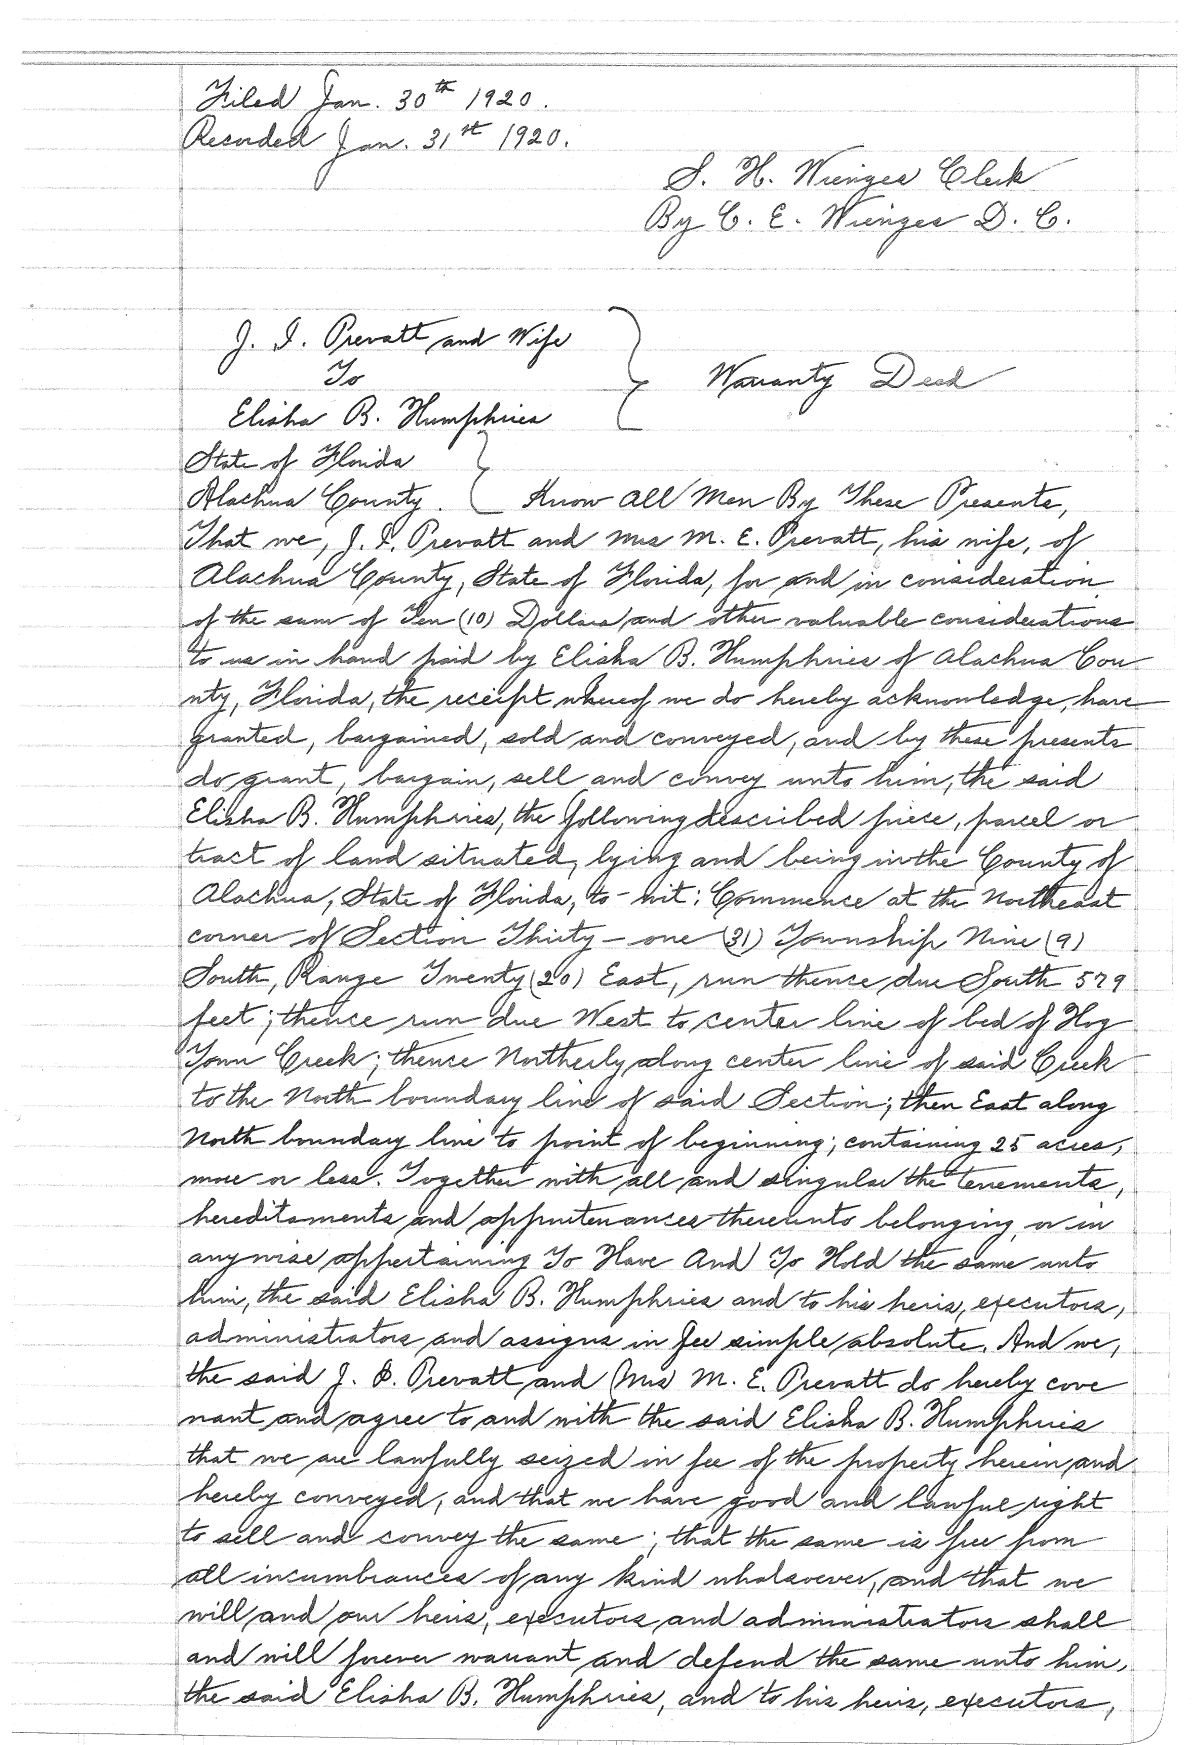 Filed Jan. 30th 1920.
Recorded Jan. 31st 1920.
S. H. Wienges Clerk
By C. E. Wienges D. C.
J. I. Prevatt and Wife
To
Elisha B. Humphries
Warranty Deed
State of Florida
Alachua County. Know All Men By These Presents,
That we, J. I. Prevatt and Mrs M. E. Prevatt, his wife, of
Alachua County, State of Florida, for and in consideration
of the sum of Ten (10) Dollars and other valuable considerations
to us in hand paid by Elisha B. Humphries of Alachua Cou
nty, Florida, the receipt whereof we do hereby acknowledge, have
granted, bargained, sold and conveyed, and by these presents
do grant, bargain, sell and convey unto him, the said
Elisha B. Humphries, the following described piece, parcel or
tract of land situated, lying and being in the County of
Alachua, State of Florida, to-wit: Commence at the Northeast
corner of Section Thirty-one (31) Township Nine (9)
South, Range Twenty (20) East, run thence due South 579
feet; thence run due West to center line of bed of Hog
Town Creek; thence Northerly along center line of said Creek
to the North boundary line of said Section; then East along
North boundary line to point of beginning; containing 25 acres,
more or less. Together with all and singular the tenements,
hereditaments and appurtenances thereunto belonging or in
anywise appertaining To Have And To Hold the same unto
him, the said Elisha B. Humphries and to his heirs, executors,
administrators and assigns in fee simple absolute. And we,
the said J. I. Prevatt and Mrs M. E. Prevatt do hereby cove
nant and agree to and with the said Elisha B. Humphries
that we are lawfully seized in fee of the property herein and
hereby conveyed, and that we have good and lawful right
to sell and convey the same; that the same is free from
all incumbrances of any kind whatsoever, and that we
will and our heirs, executors and administrators shall
and will forever warrant and defend the same unto him,
the said Elisha B. Humphries, and to his heirs, executors,